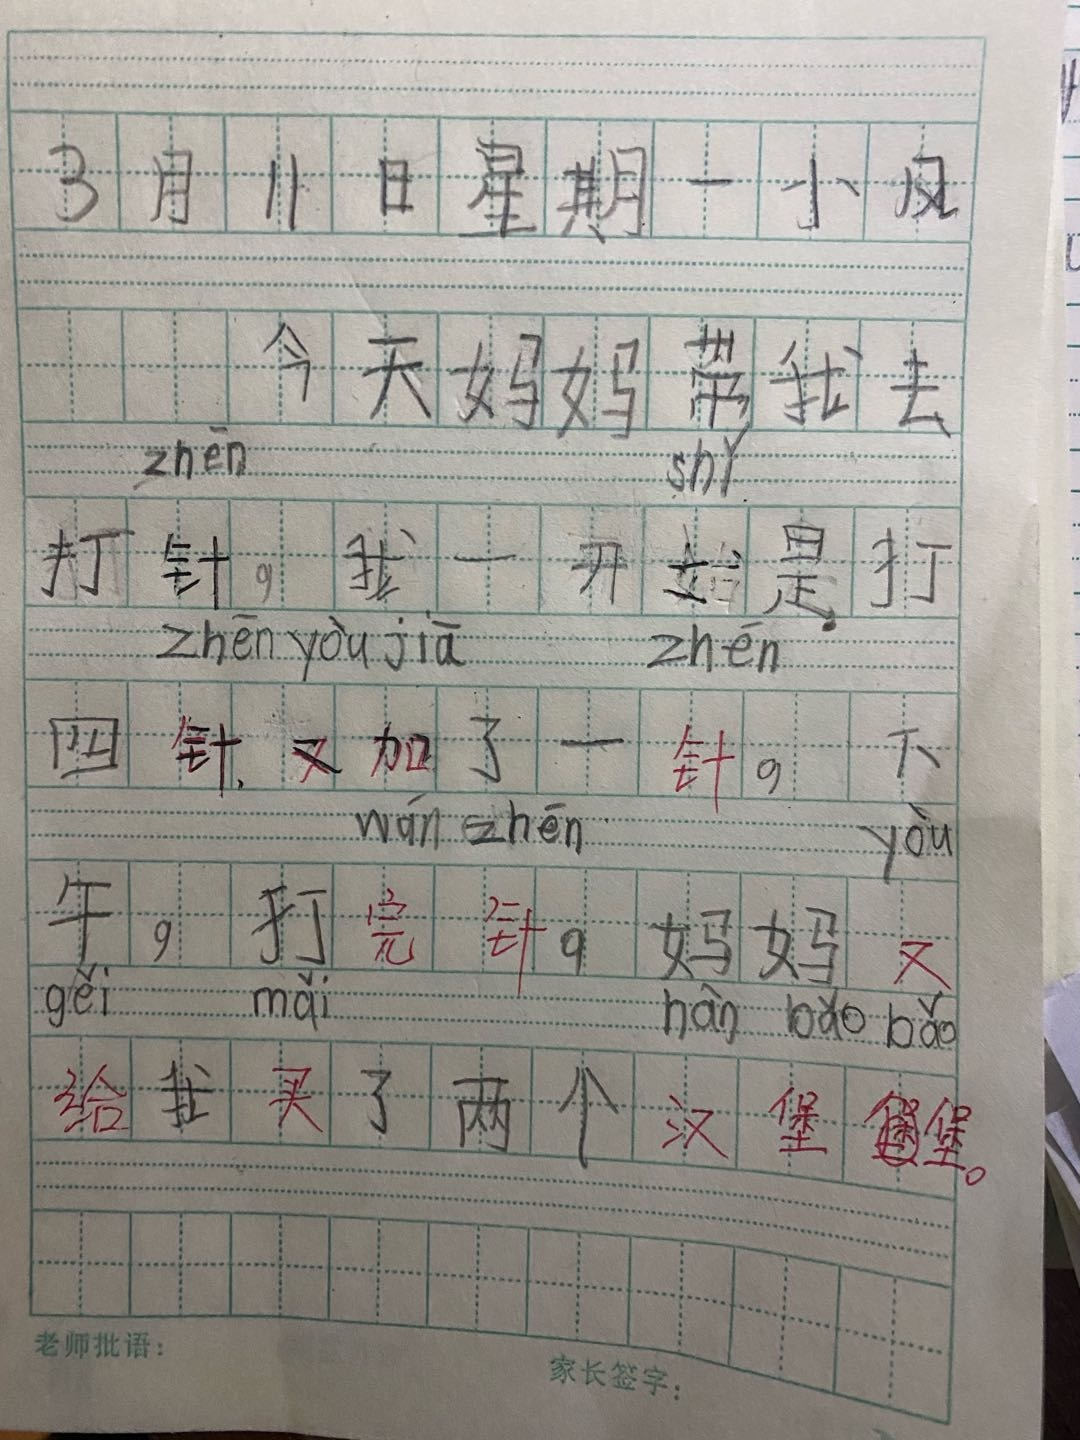 3月11日星期一小风
今天妈妈带我去
zhēn shǐ
打针,我一开始是打
zhēn yòu jiā zhēn
四针,又加了一针,下
wán zhēn yòu
午,打完针,妈妈又
gěi mǎi hàn bǎo bǎo
给我买了两个汉堡堡。
老师批语:
家长签字: